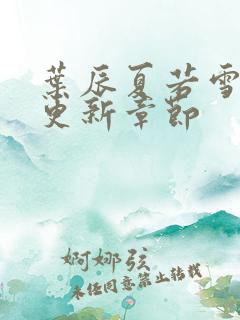 葉辰夏若雪
更新章節
婀娜弦
未经同意禁止转载